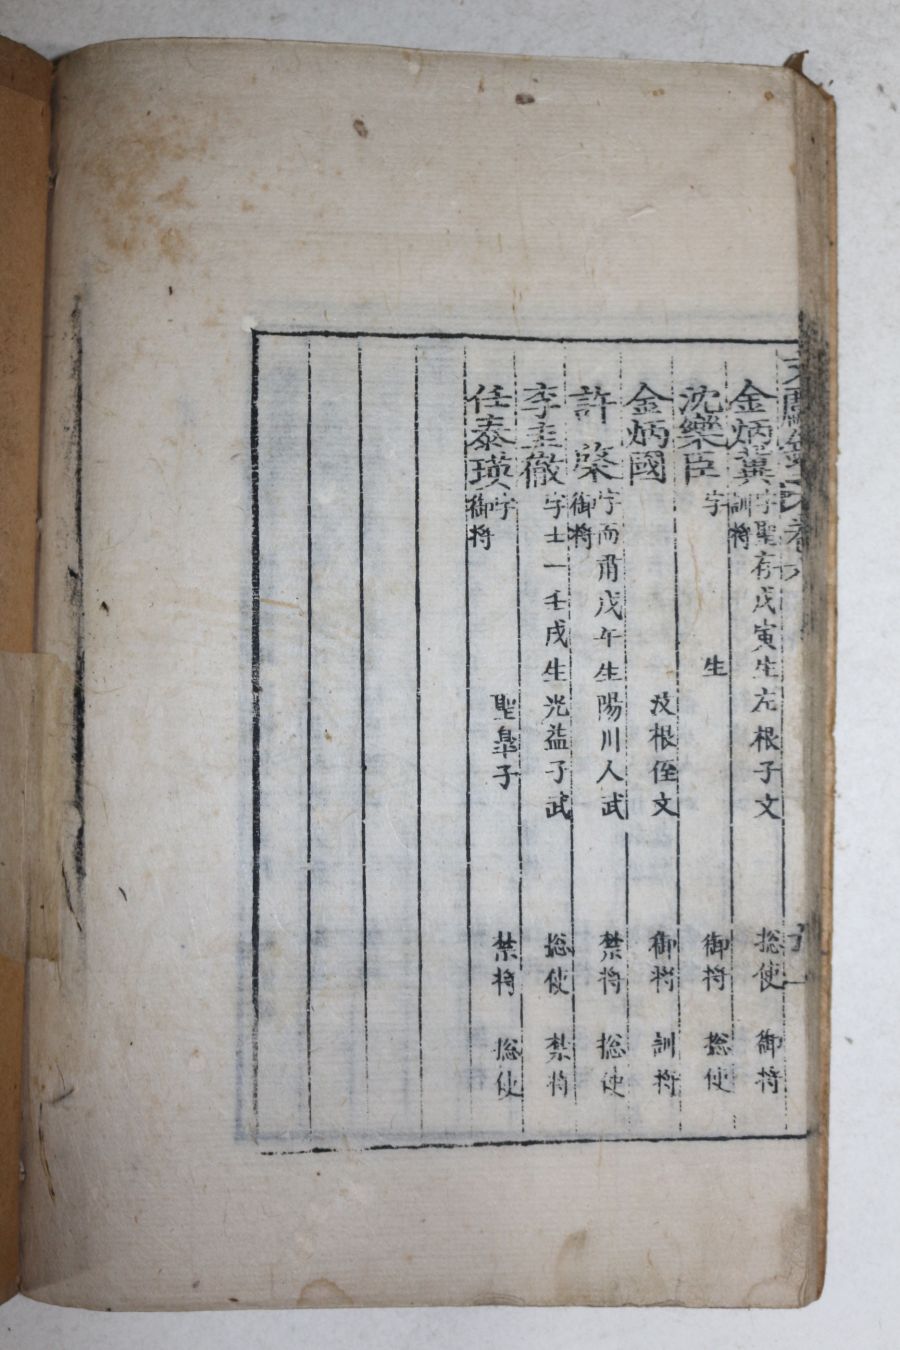 文獻錄 卷六
金炳冀 字聖存戊寅生左根子文 摠使 御將
訓將
沈樂臣 字 生 御將 摠使
金炳國 汶根侄文 御將 訓將
許棨 字而肅戊午生陽川人武 禁將 摠使
御將
李圭徹 字士一壬戌生光益子武 摠使 禁將
任泰瑛 字 聖皐子 禁將 摠使
御將